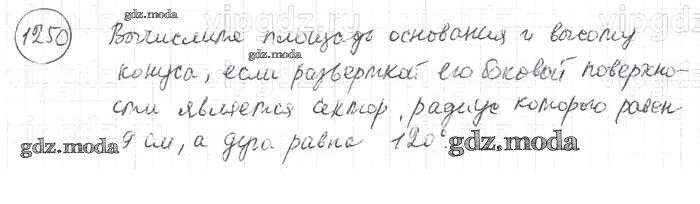 1250 Вычислите площадь основания и высоту
конуса, если разверткой его боковой поверхно-
сти является сектор, радиус которого равен
9 см, а дуга равна 120°.
gdz.moda
gdz.moda
gdz.moda
gdz.moda